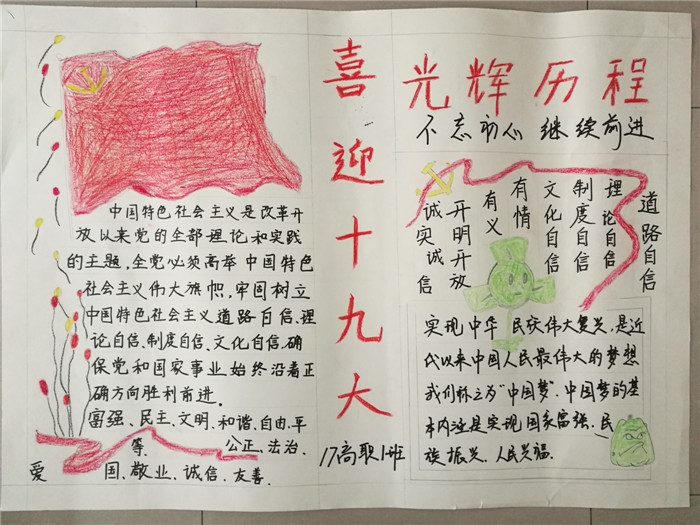 中国特色社会主义是改革开
放以来党的全部理论和实践
的主题,全党必须高举中国特色
社会主义伟大旗帜,牢固树立
中国特色社会主义道路自信、理
论自信、制度自信、文化自信、确
保党和国家事业始终沿着正
确方向胜利前进。
富强、民主、文明、和谐、自由、平
等、公正、法治、
爱国、敬业、诚信、友善、
喜迎十九大
17高职1班
光辉历程
不忘初心 继续前进
道路自信
理论自信
制度自信
文化自信
有情
有义
开明开放
诚实诚信
实现中华民族伟大复兴,是近
代以来中国人民最伟大的梦想
我们称之为“中国梦”.中国梦的基
本内涵是实现国家富强、民
族振兴、人民兴福.